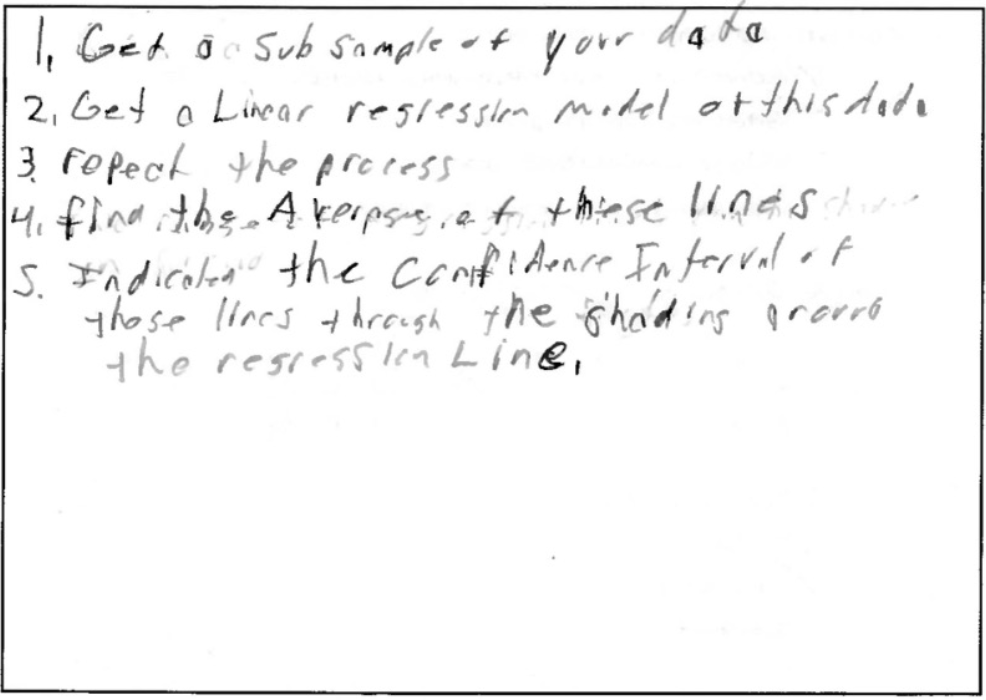 1. Get a Sub sample of your data
2. Get a Linear regression model of this data
3. repeat the process
4. find the Average of these lines
5. Indicated the Confidence Interval of
those lines through the shading around
the regression Line.